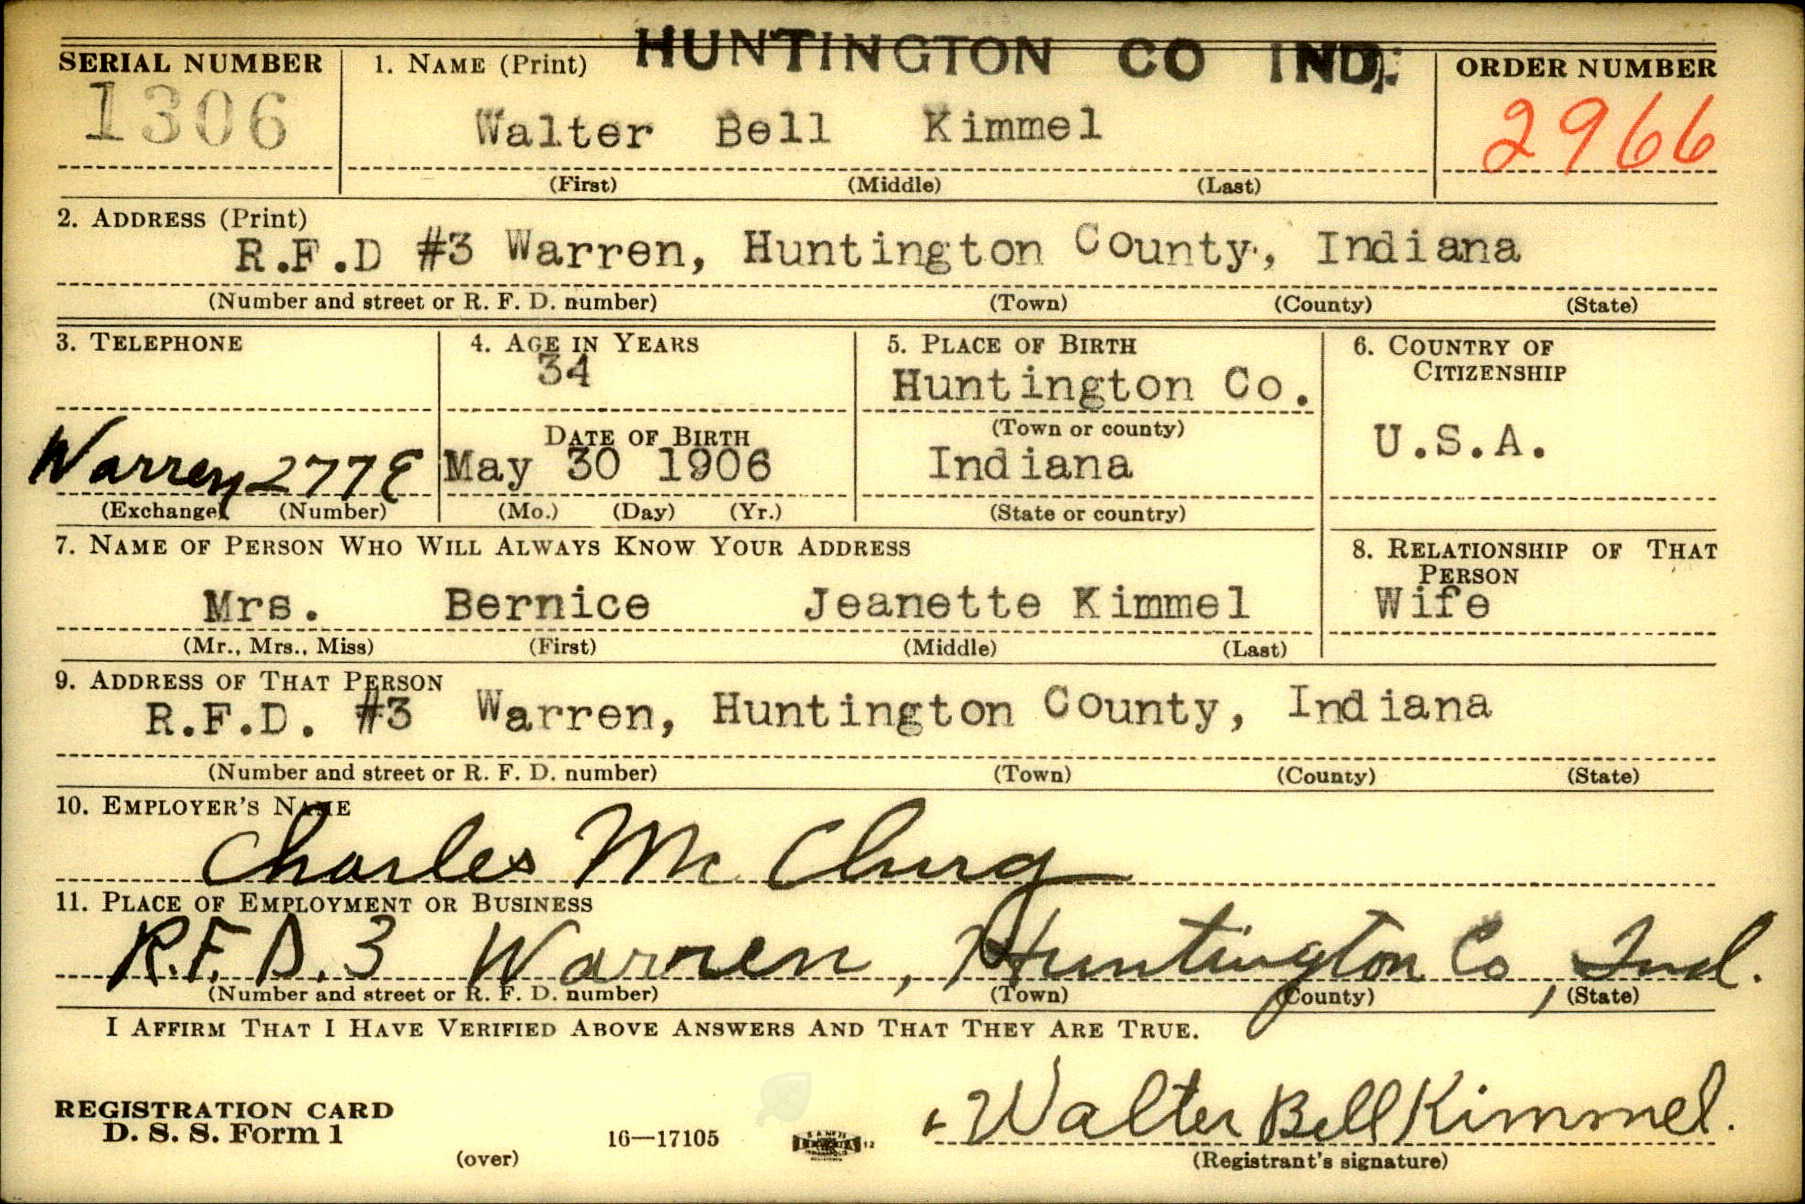 HUNTINGTON CO IND.
SERIAL NUMBER 1. NAME (Print) ORDER NUMBER
1306 Walter Bell Kimmel 2966
(First) (Middle) (Last)
2. ADDRESS (Print)
R.F.D #3 Warren, Huntington County, Indiana
(Number and street or R. F. D. number) (Town) (County) (State)
3. TELEPHONE 4. AGE IN YEARS 5. PLACE OF BIRTH 6. COUNTRY OF CITIZENSHIP
34 Huntington Co.
DATE OF BIRTH (Town or county) U.S.A.
Warren 277E May 30 1906 Indiana
(Exchange) (Number) (Mo.) (Day) (Yr.) (State or country)
7. NAME OF PERSON WHO WILL ALWAYS KNOW YOUR ADDRESS 8. RELATIONSHIP OF THAT PERSON
Mrs. Bernice Jeanette Kimmel Wife
(Mr., Mrs., Miss) (First) (Middle) (Last)
9. ADDRESS OF THAT PERSON
R.F.D. #3 Warren, Huntington County, Indiana
(Number and street or R. F. D. number) (Town) (County) (State)
10. EMPLOYER'S NAME
Charles Mc Clurg
11. PLACE OF EMPLOYMENT OR BUSINESS
R.F.D. 3 Warren, Huntington Co, Ind.
(Number and street or R. F. D. number) (Town) (County) (State)
I AFFIRM THAT I HAVE VERIFIED ABOVE ANSWERS AND THAT THEY ARE TRUE.
REGISTRATION CARD
D. S. S. Form 1 16—17105 Walter Bell Kimmel.
(over) (Registrant's signature)